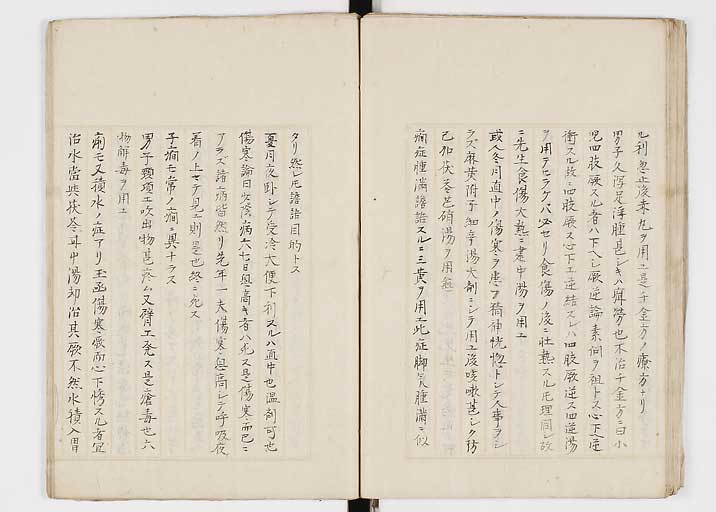 ル利忽止後来丸ヲ用ユ是千金方ノ療方ナリ
男子久瀉足浮腫甚シキハ癖労也不治千金方ニ曰小
児四肢厥スル者ハ下ヘシ厥逆論素問ヲ祖トス心下ヘ逆
衝スル故ニ四肢厥ス心下エ逆結スレハ四肢厥逆ス四逆湯
ヲ用テヒラクハ必セリ食傷ノ後ニ壮熱スル圧理同シ故
ニ先生食傷大熱ニ建中湯ヲ用ユ
或人冬月直中ノ傷寒ヲ患フ精神恍惚トシテ人事ヲシ
ラズ麻黄附子細辛湯大剤ニシテ用ユ後咳嗽甚シク彷
己加茯苓芒硝湯ヲ用愈
痢症腫満譫語スルニ三黄ヲ用ユ此症脚気腫満ニ似
タリ然レ圧譫語目的トス
夏月夜卧シテ受冷大便下利スルハ直中也温剤可也
傷寒論曰少陰病六七日息高キ者ハ死ス是傷寒而已ニ
アラズ諸病皆然リ先年一夫傷寒ニ息高シテ呼吸夜
着ノ上ヨリ見エ則是也終ニ死ス
子癇モ常ノ癇ニ異ナラス
男子頸項エ吹出物甚疼ム又臂エ発ス是瘡毒也六
物解毒ヲ用ユ
痢モ又積水ノ症アリ玉函傷寒厥而心下悸スル者宜
治水當與茯苓甘中湯却治其厥不然水積入胃